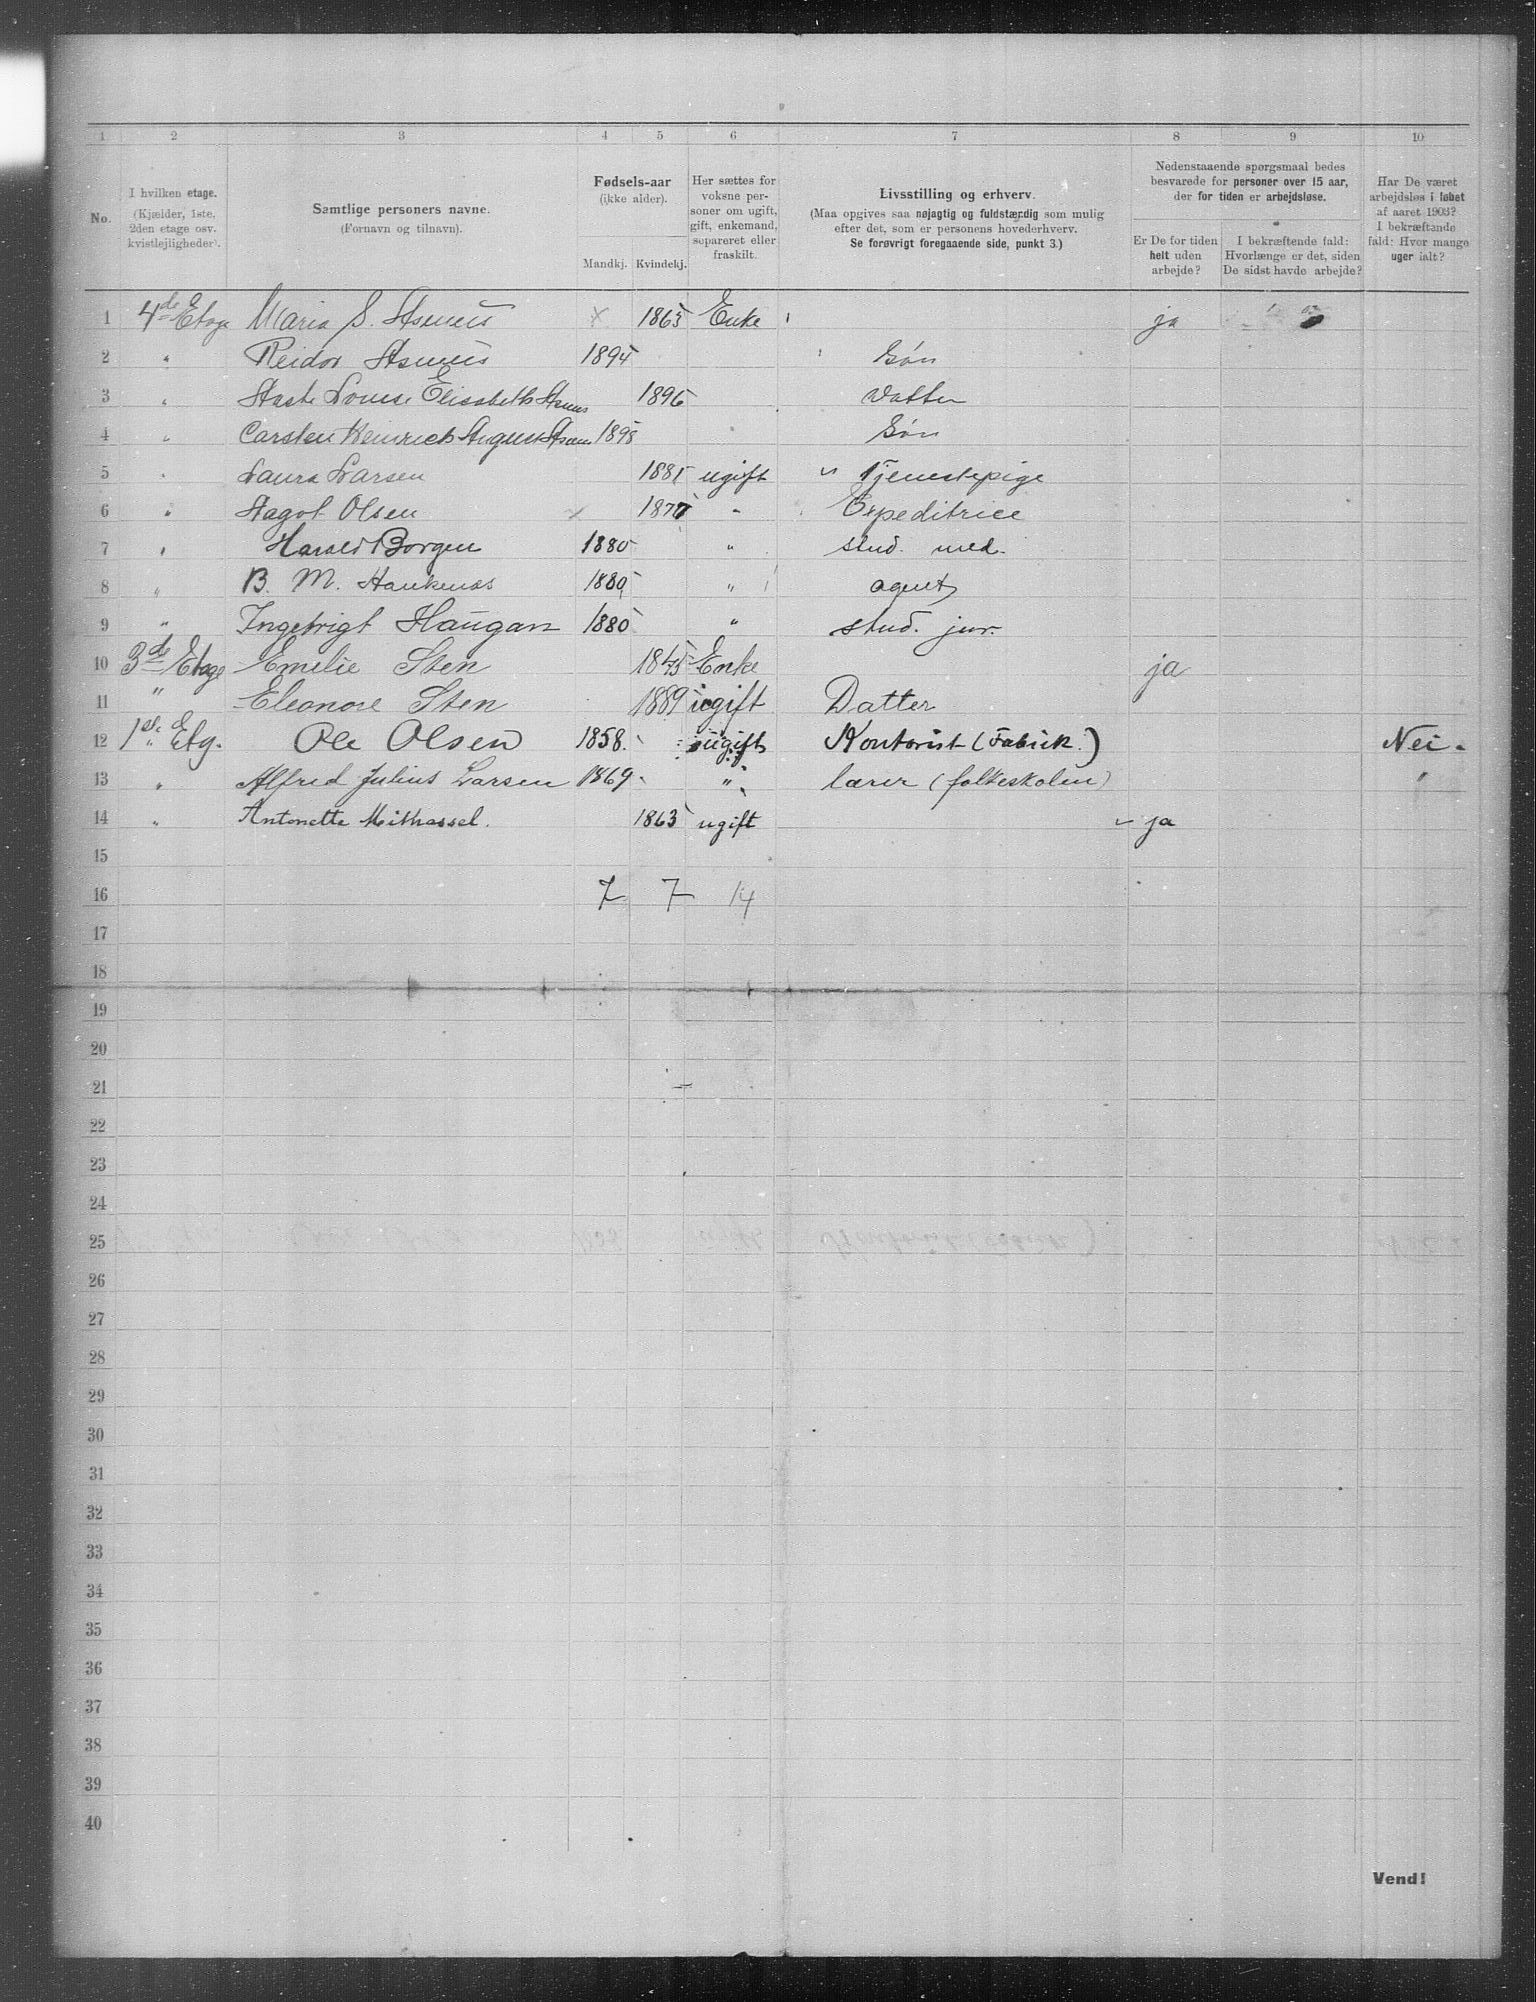 1 2 3 4 5 6 7 8 9 10
No.
I hvilken etage.
(Kjælder, 1ste, 2den etage osv. kvistlejligheder).
Samtlige personers navne.
(Fornavn og tilnavn).
Fødsels-aar
(ikke alder).
Mandkj. Kvindekj.
Her sættes for voksne personer om ugift, gift, enkemand, separeret eller fraskilt.
Livsstilling og erhverv.
(Maa opgives saa nøjagtig og fuldstærdig som mulig efter det, som er personens hovederhverv.
Se forøvrigt foregaaende side, punkt 3.)
Nedenstaaende spørgsmaal bedes besvarede for personer over 15 aar, der for tiden er arbejdsløse.
Er De for tiden helt uden arbejde?
I bekræftende fald: Hvorlænge er det, siden De sidst havde arbejde?
Har De været arbejdsløs i løbet af aaret 1903? I bekræftende fald: Hvor mange uger ialt?
1 4de Etage Maria S. Asmus × 1863 Enke ja
2 " Reidar Asmus 1895 Søn
3 " Louise Elisabeth Asmus 1896 Datter
4 " Carsten Heinrich August Asmus 1898 Søn
5 " Laura Larsen 1881 ugift Tjenestepige
6 " Olsen 1877 " Expeditrice
7 " Harald Borgen 1880 " stud. med.
8 " B. M. Haukenæs 1880 " agent
9 " Ingebrigt Haugan 1880 " stud. jur.
10 3de Etage Emelie Sten 1845 Enke ja
11 " Eleonore Sten 1889 ugift Datter
12 1st. Etg. Ole Olsen 1858. ugift Kontorist (Fabrik.) Nei.
13 " Alfred Julius Larsen 1869. " lærer (folkeskolen) "
14 " Antonette Mithassel. 1863 ugift ja
15
16 7 7 14
17
18
19
20
21
22
23
24
25
26
27
28
29
30
31
32
33
34
35
36
37
38
39
40
Vend!